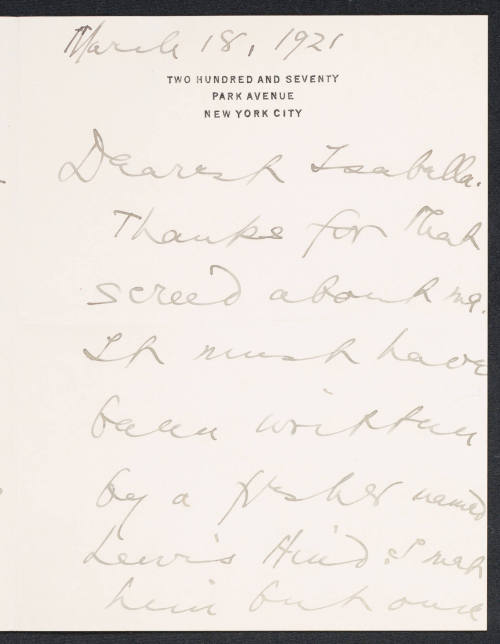 March 18, 1921
TWO HUNDRED AND SEVENTY
PARK AVENUE
NEW YORK CITY
Dearest Isabella.
Thanks for that
screed about me.
It must have
been written
by a fisher named
Lewis Hind. I met
him but once